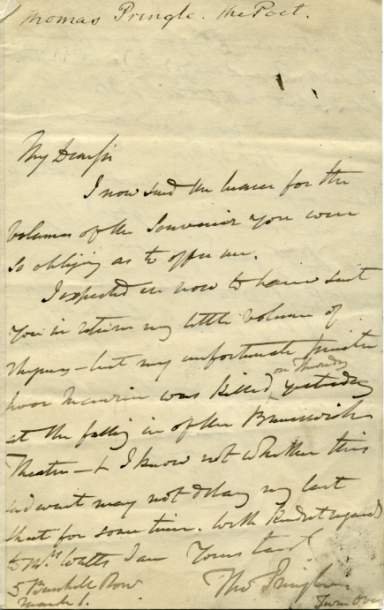 Thomas Pringle. the Poet.
My Dear Sir
I now send the bearer for the
volumes of the Souvenir you were
so obliging as to offer me.
I expected ere now to have sent
you in return my little volume of
rhymes – but my unfortunate printer
on Thursday
poor Maurice was killed yesterday
at the falling in of the Brunswick
Theatre – & I know not whether this
accident may not delay my last
sheet for some time. With kindest regards
to Mrs Watts I am Yours truly
5 Bunhill Row Tho Pringle
March 1. Turn Over